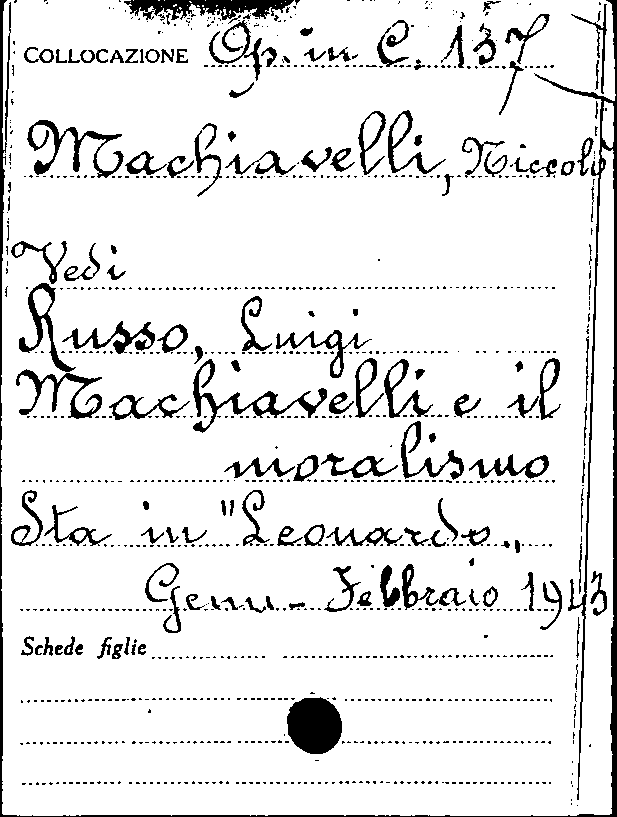 COLLOCAZIONE Op. in C. 137
Machiavelli, Niccolò
Vedi
Russo, Luigi
Machiavelli e il
moralismo
Sta in "Leonardo„
Genn - Febbraio 1943
Schede figlie